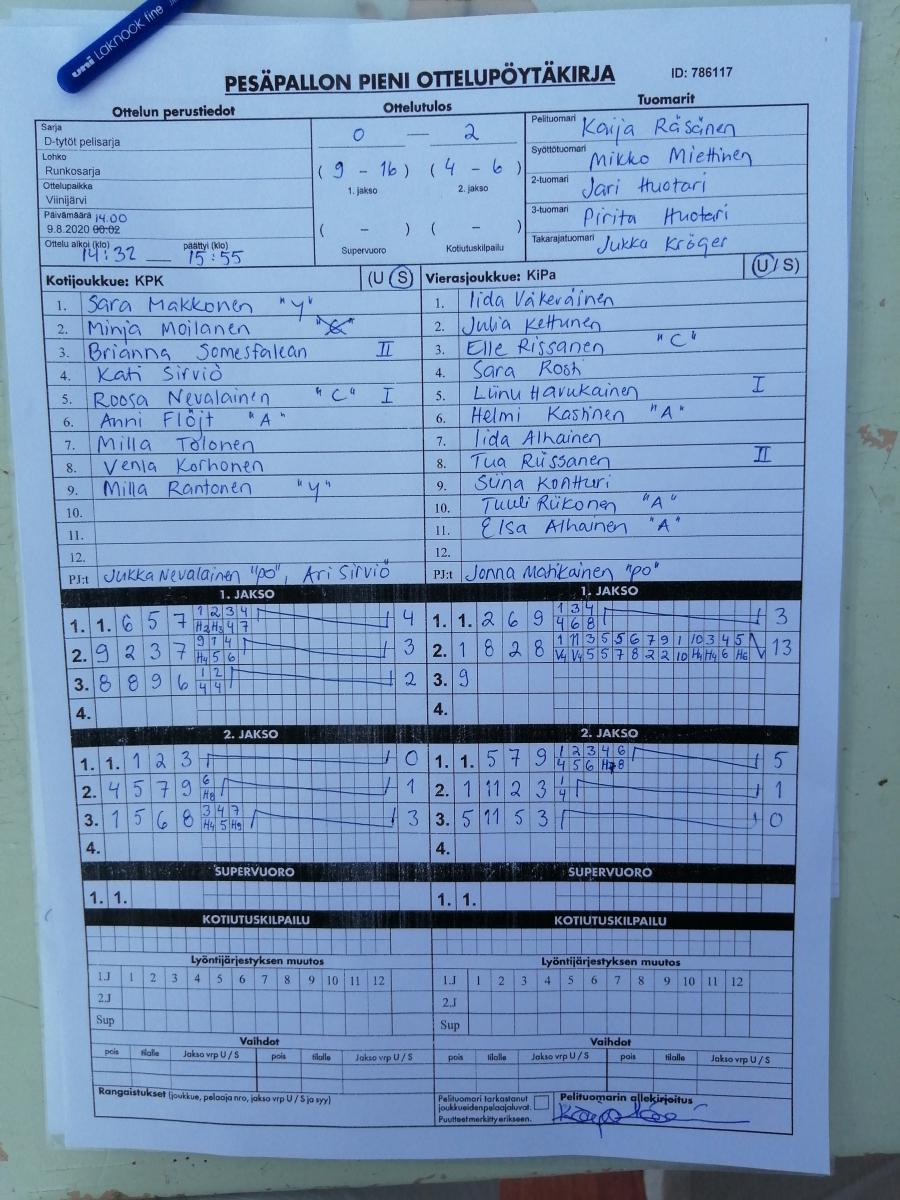 uni LAKNOCK fine
PESÄPALLON PIENI OTTELUPÖYTÄKIRJA ID: 786117
Ottelun perustiedot Ottelutulos Tuomarit
Sarja
D-tytöt pelisarja
Lohko
Runkosarja
Ottelupaikka
Viinijärvi
Päivämäärä 14.00
9.8.2020 00:02
Ottelu alkoi (klo) päättyi (klo)
14:32 — 15:55
0 — 2
( 9 - 16 ) ( 4 - 6 )
1. jakso 2. jakso
( - ) ( - )
Supervuoro Kotiutuskilpailu
Pelituomari Kaija Räsänen
Syöttötuomari Mikko Miettinen
2-tuomari Jari Huotari
3-tuomari Pirita Huotari
Takarajatuomari Jukka Kröger
Kotijoukkue: KPK (U / S)
1. Sara Makkonen "Y"
2. Minja Moilanen "C"
3. Brianna Somesfalean II
4. Kati Sirviö
5. Roosa Nevalainen "C" I
6. Anni Flöjt "A"
7. Milla Tolonen
8. Venla Korhonen
9. Milla Rantonen "Y"
10.
11.
12.
PJ:t Jukka Nevalainen "PO", Ari Sirviö
Vierasjoukkue: KiPa (U / S)
1. Iida Väkeväinen
2. Julia Kettunen
3. Elle Rissanen "C"
4. Sara Rosti
5. Liinu Havukainen I
6. Helmi Kastinen "A"
7. Iida Alhainen
8. Tua Riissanen II
9. Siina Kontturi
10. Tuuli Riikonen "A"
11. Elsa Alhainen "A"
12.
PJ:t Jonna Matikainen "PO"
1. JAKSO
1. 1. 6 5 7 1 2 3 4 4
H2 H3 4 7
2. 9 2 3 7 9 7 4 3
H4 5 6
3. 8 8 9 6 1 2 2
4 4
4.
1. JAKSO
1. 1. 2 6 9 1 3 4 3
4 6 8
2. 1 8 2 8 1 11 3 5 5 6 7 9 1 10 3 4 5 13
V4 V4 5 5 7 8 2 2 10 H4 H4 6 H6
3. 9
4.
2. JAKSO
1. 1. 1 2 3 0
2. 4 5 7 9 6 1
H8
3. 1 5 6 8 3 4 7 3
H4 5 H9
4.
2. JAKSO
1. 1. 5 7 9 1 2 3 4 6 5
4 5 6 H7 8
2. 1 11 2 3 1 1
4
3. 5 11 5 3 0
4.
SUPERVUORO SUPERVUORO
1. 1. 1. 1.
KOTIUTUSKILPAILU KOTIUTUSKILPAILU
Lyöntijärjestyksen muutos Lyöntijärjestyksen muutos
1.J 1 2 3 4 5 6 7 8 9 10 11 12 1.J 1 2 3 4 5 6 7 8 9 10 11 12
2.J 2.J
Sup Sup
Vaihdot Vaihdot
pois tilalle Jakso vrp U / S pois tilalle Jakso vrp U / S pois tilalle Jakso vrp U / S pois tilalle Jakso vrp U / S
Rangaistukset (joukkue, pelaaja nro, jakso vrp U / S ja syy)
Pelituomari tarkastanut
joukkueiden pelaajaluvat.
Puutteet merkitty erikseen.
Pelituomarin allekirjoitus